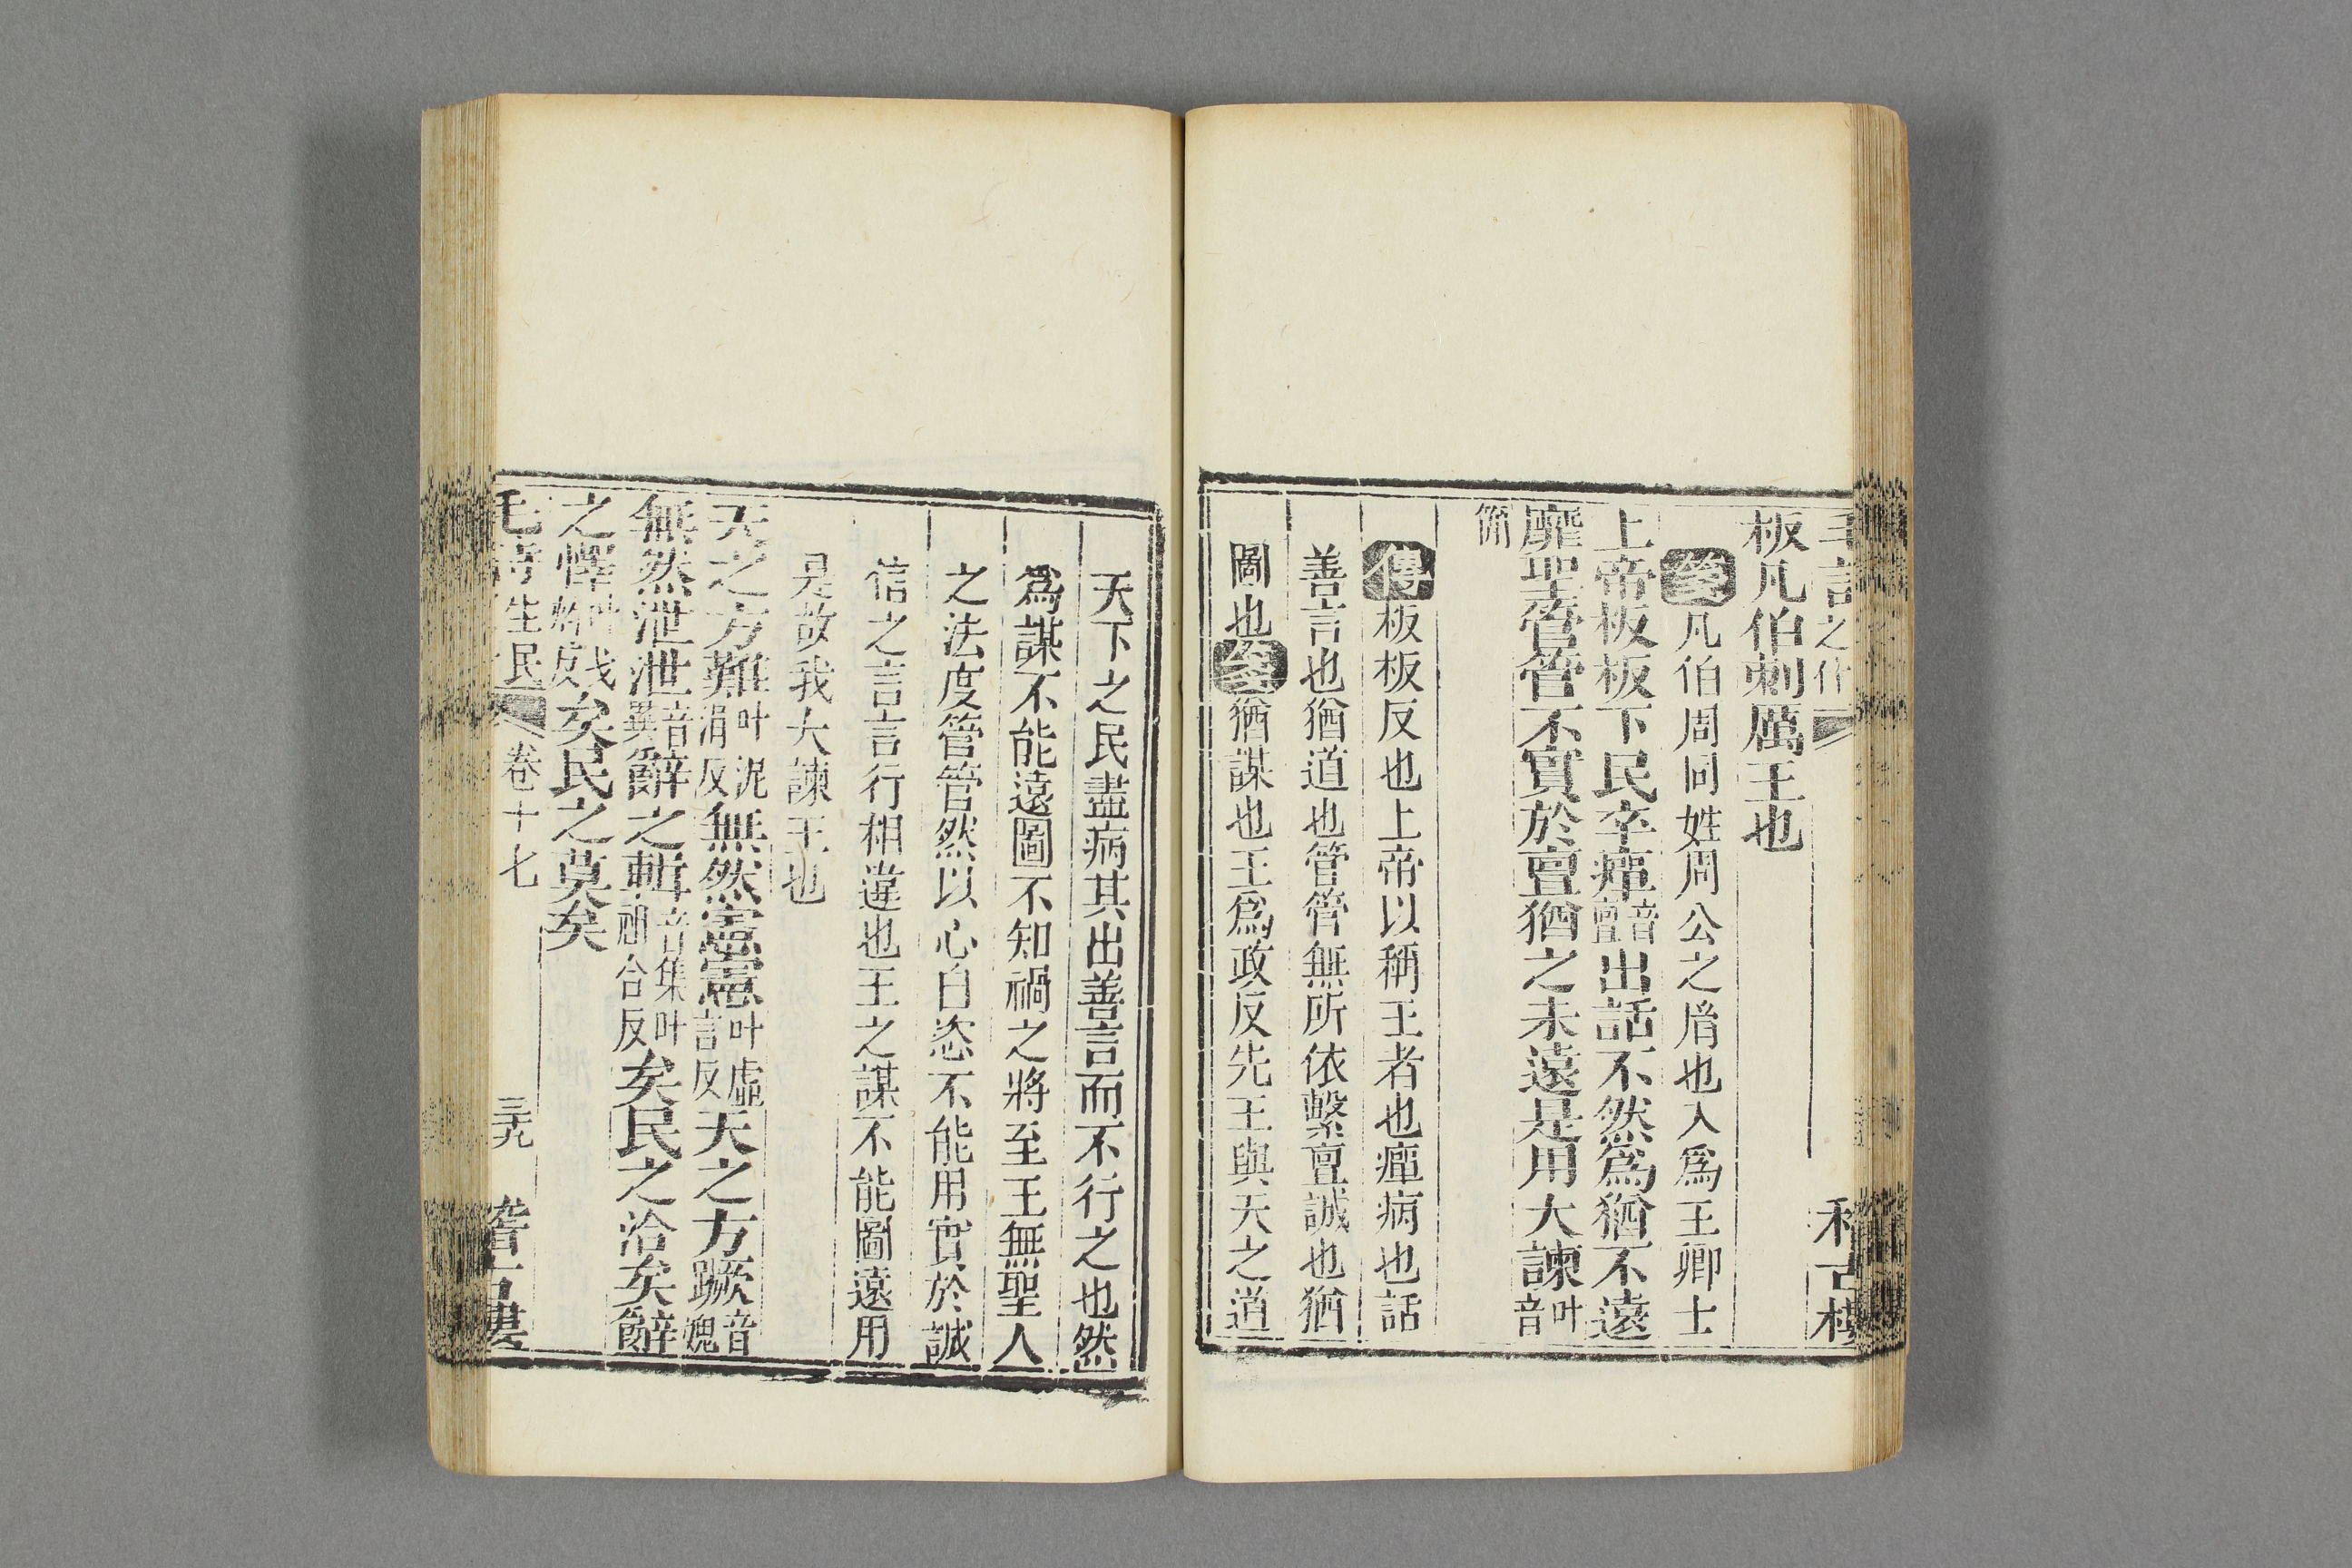 毛詩之什
板凡伯刺厲王也
箋凡伯周同姓周公之𦙍也入爲王卿士
上帝板板下民卒癉音亶出話不然爲猶不遠
靡聖管管不實於亶猶之未遠是用大諫叶音
簡
傳板板反也上帝以稱王者也癉病也話
善言也猶道也管管無所依繫亶誠也猶
圖也箋猶謀也王爲政反先王與天之道
天下之民盡病其出善言而不行之也然
爲謀不能遠圖不知禍之將至王無聖人
之法度管管然以心自恣不能用實於誠
信之言言行相違也王之謀不能圖遠用
是故我大諫王也
天之方難叶泥涓反無然憲憲叶虛言反天之方蹶音媿
無然泄泄音異辭之輯音集叶祖合反矣民之洽矣辭
之懌叶弋灼反矣民之莫矣
毛詩生民 卷十七 三九 稽古樓